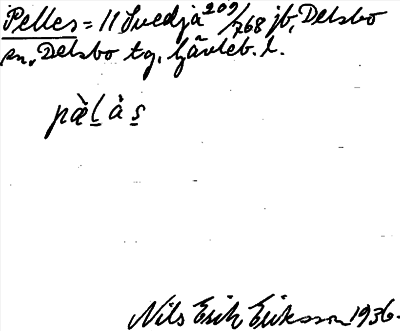 Pelles = 11 Svedja 209/768 jb, Delsbo
sn, Delsbo tg, Gävleb. l.
pæ̀l̲ȧs̲
Nils Erik Eriksson 1936.